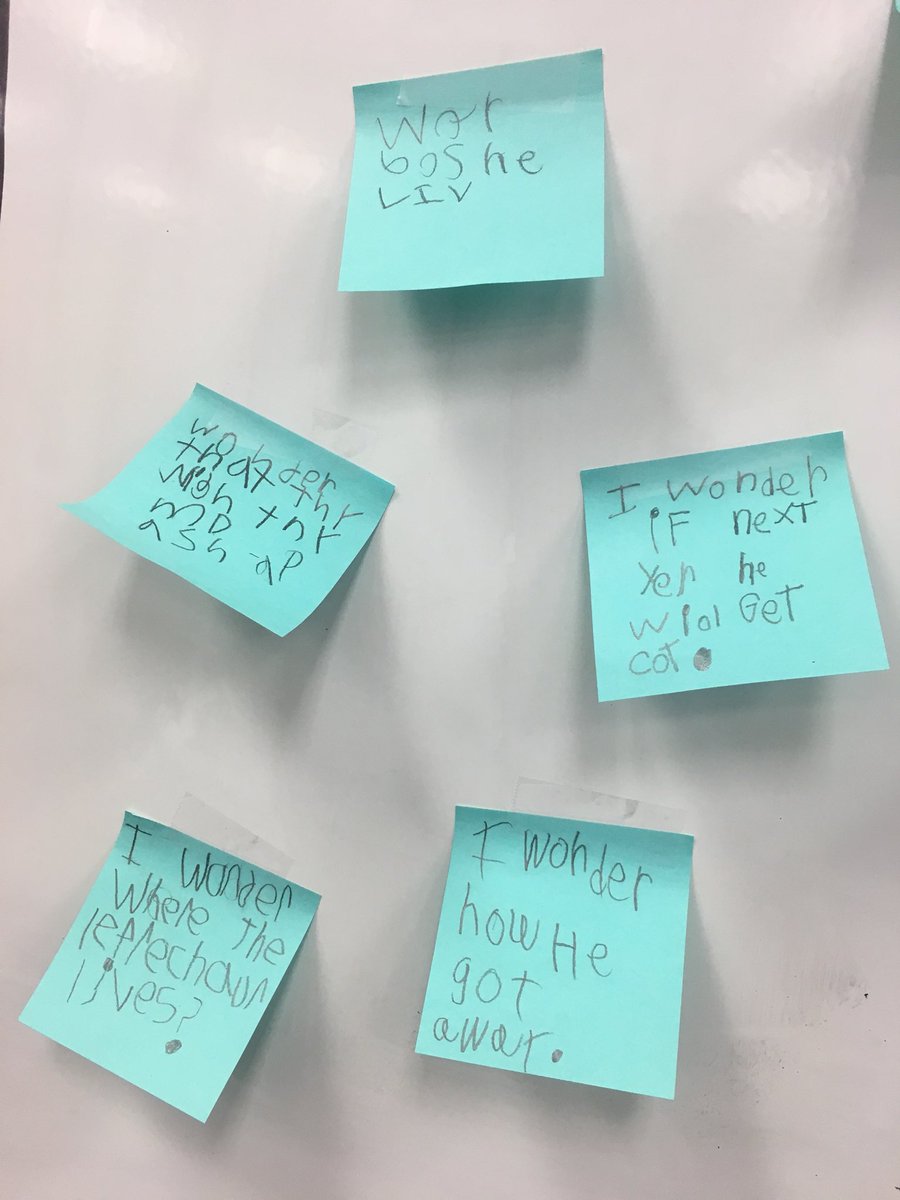 Wor
bos he
LIV
wonder
that thr
Won tnt
m
ash ap
I wonder
iF next
Yer he
wiol Get
cot.
I wonder
Where The
lepfrechaun
lives?
I wonder
how He
got
away.